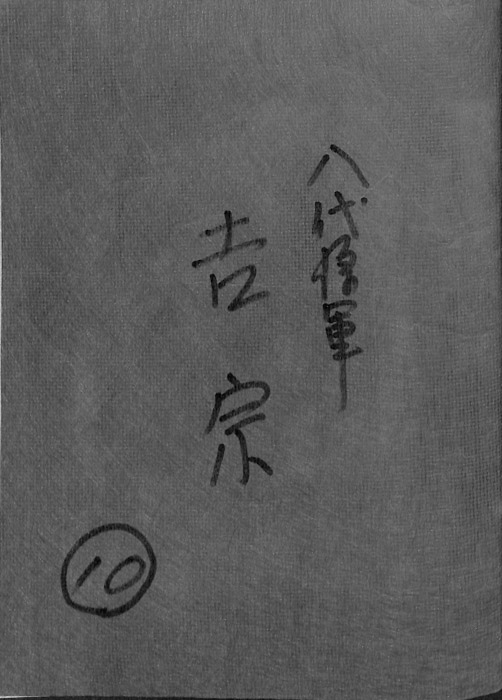 八代将軍
吉宗
⑩